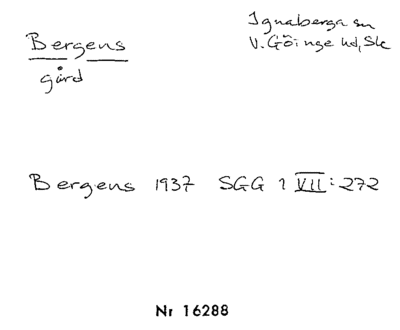 Bergens
gård
Ignaberga sn
V. Göinge hd, Sk
Bergens 1937 SGG 1 VII: 272
Nr 16288